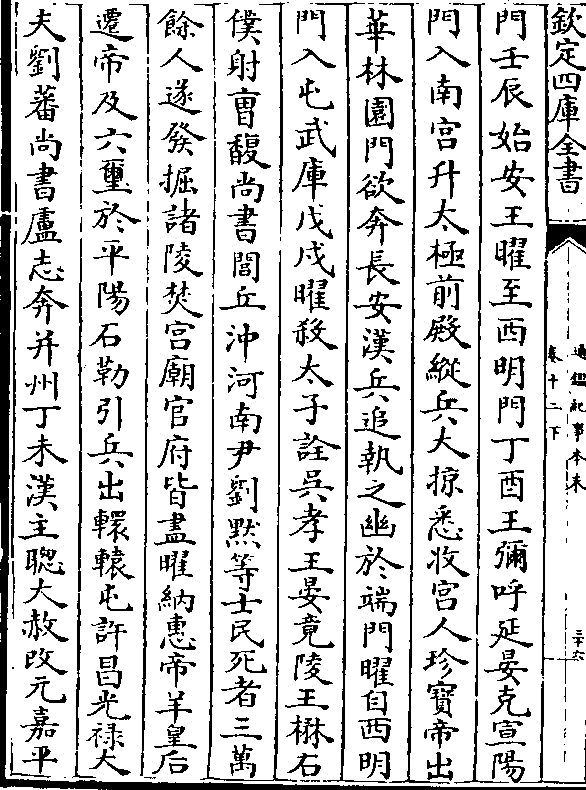 欽定四庫全書
通鑑紀事本末
卷十二下
三十六
門壬辰始安王曜至西明門丁酉王彌呼延晏克宣陽
門入南宮升太極前殿縱兵大掠悉收宮人珍寶帝出
華林園門欲奔長安漢兵追執之幽於端門曜自西明
門入屯武庫戊戌曜殺太子詮吳孝王晏竟陵王楙右
僕射曺馥尚書閭丘沖河南尹劉默等士民死者三萬
餘人遂發掘諸陵焚宮廟官府皆盡曜納惠帝羊皇后
遷帝及六璽於平陽石勒引兵出轘轅屯許昌光禄大
夫劉蕃尚書盧志奔并州丁未漢主聰大赦改元嘉平